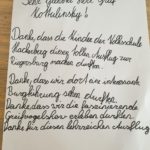 Sehr Geehrter Herr Graf
Kottulinsky!
Danke, dass die Kinder der Volksschule
diesen tollen Ausflug zur
Riegersburg machen durften.
Danke, dass wir dort eine interessante
Burgführung sehen durften.
Danke, dass wir die faszinierende
Greifvogelshow erleben durften.
Danke für diesen lehrreichen Ausflug